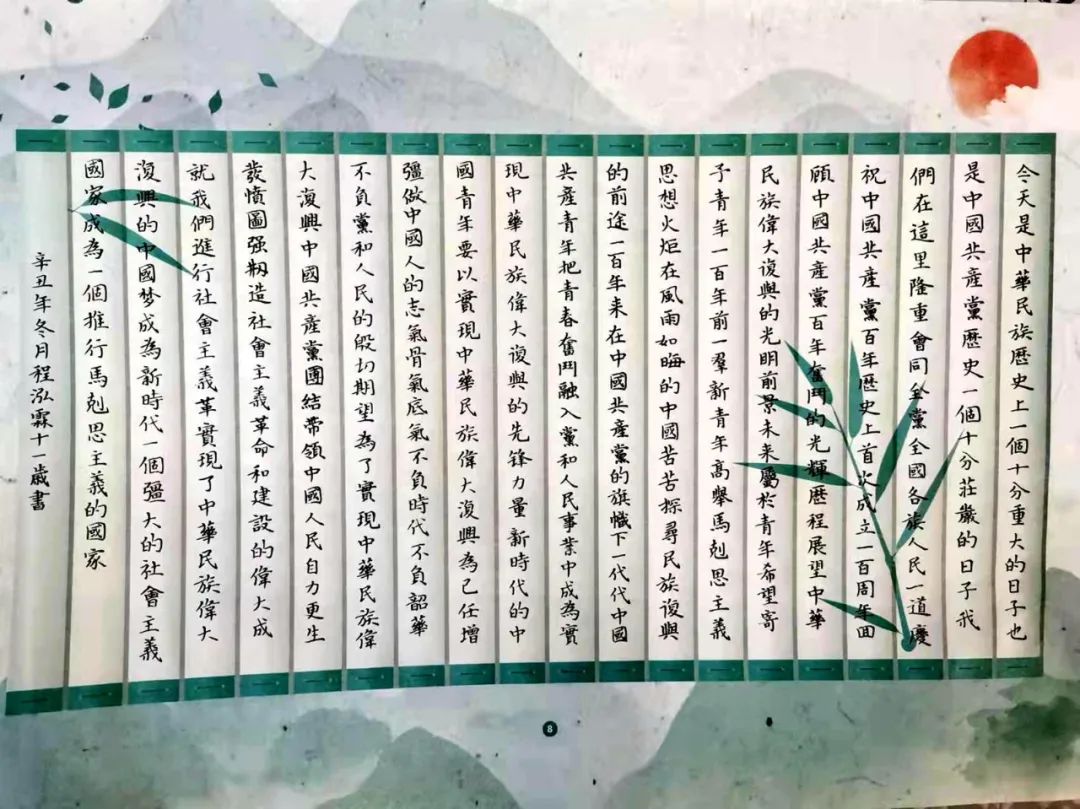 今天是中華民族歷史上一個十分重大的日子也
是中國共產黨歷史一個十分莊嚴的日子我
們在這里隆重會同全黨全國各族人民一道慶
祝中國共產黨百年歷史上首次成立一百周年面
顧中國共產黨百年奮鬥的光輝歷程展望中華
民族偉大復興的光明前景未来屬於青年希望寄
予青年一百年前一羣新青年高舉馬剋思主義
思想火炬在風雨如晦的中國苦苦探尋民族復興
的前途一百年来在中國共產黨的旗幟下一代代中國
共產青年把青春奮鬥融入黨和人民事業中成為實
現中華民族偉大復興的先锋力量新時代的中
國青年要以實現中華民族偉大復興為己任增
彊做中國人的志氣骨氣底氣不負時代不負韶華
不負黨和人民的殷切期望為了實現中華民族偉
大復興中國共產黨團結帶領中國人民自力更生
發憤圖强剏造社會主義革命和建設的偉大成
就我們進行社會主義革實現了中華民族偉大
復興的中國梦成為新時代一個彊大的社會主義
國家成為一個推行馬剋思主義的國家
辛丑年冬月程泓霖十一歲書
8